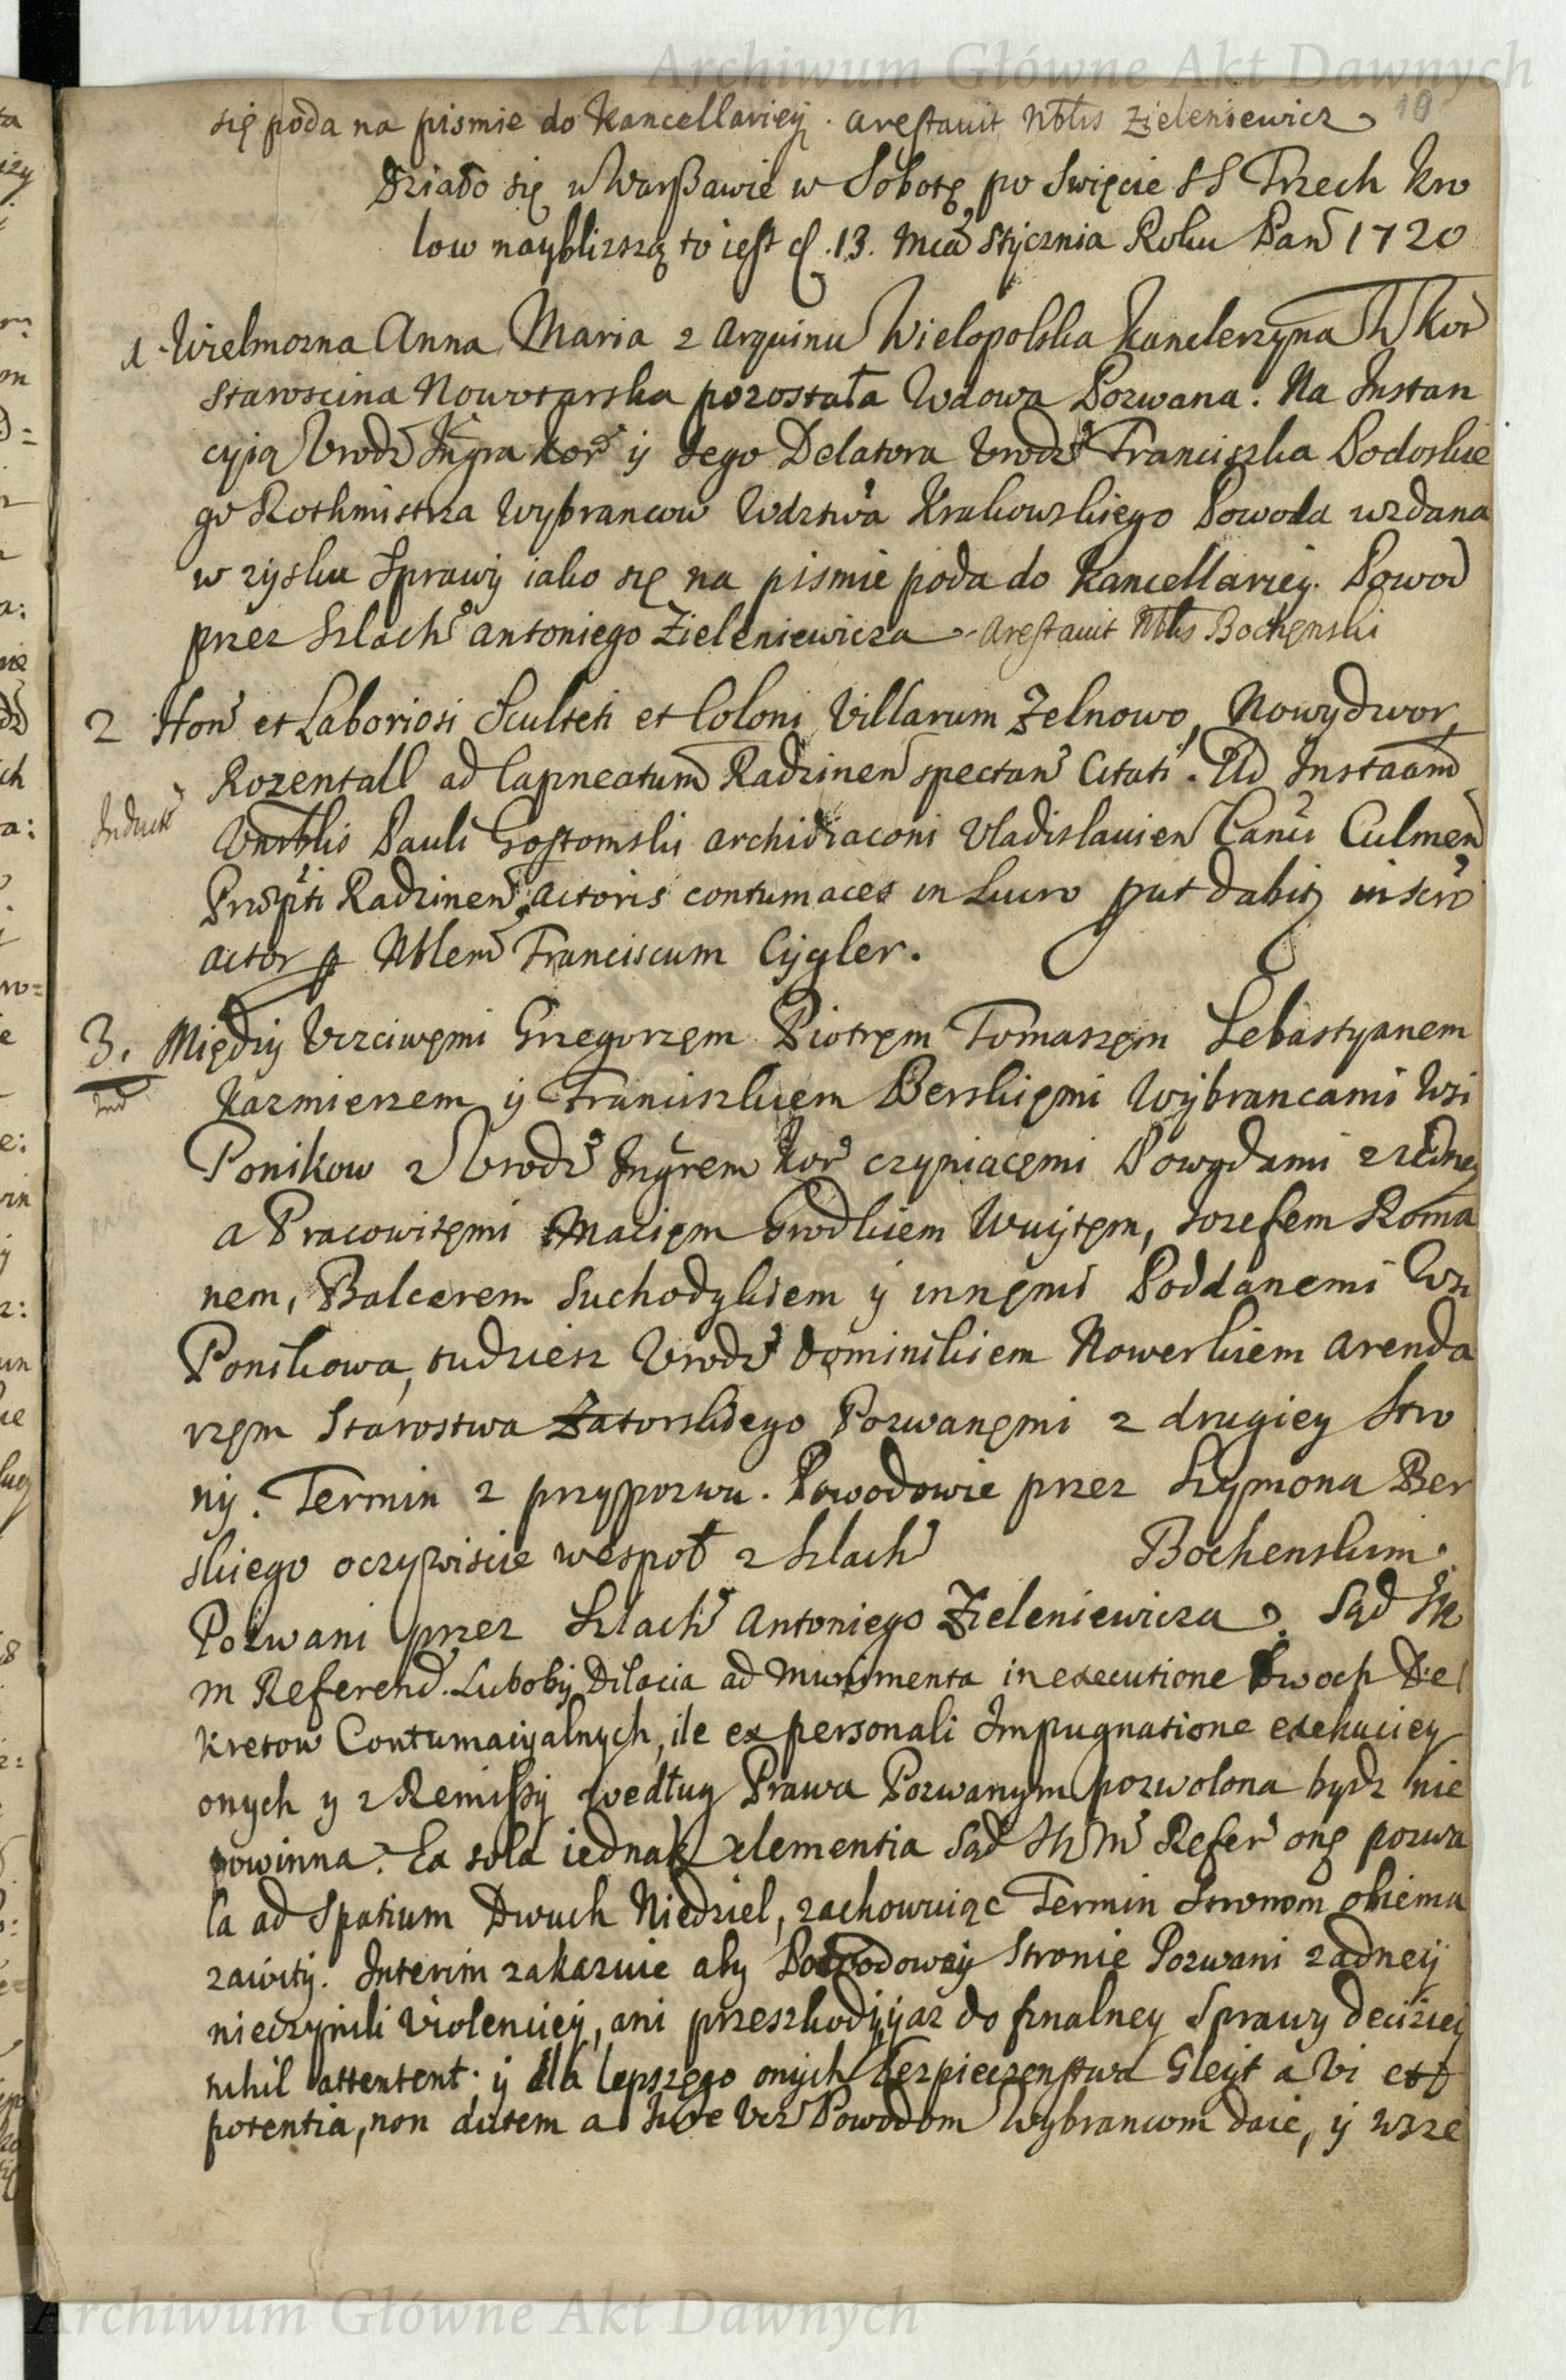 Archiwum Główne Akt Dawnych
się poda na pismie do Kancellaryiey. Arestavit Nblis Zieleniewicz 10
Działo się w Warszawie w Sobotę po Swięcie SS Trzech Kro
low nayblizszą to iest d. 13. Mca Stycznia Roku Pan 1720
1. Wielmozna Anna Maria z Arquinu Wielopolska Kanclerzyna W Kor
Staroscina Nowotarska pozostała Wdowa Pozwana. Na Instan
cyią Urodz Instygra Kor y Jego Delatora Urodz Franciszka Podoskie
go Rothmistrza Wybrancow Wdztwa Krakowskiego Powoda wzdana
w zysku Sprawy iako się na pismie poda do Kancellariey. Powod
przez Szlach Antoniego Zieleniewicza Arestavit Nblis Bochenski
2 Hon et Laboriosi Sculteti et Coloni Villarum Zelnowo, Nowydwor,
Rozentall ad Capneatum Radzinen spectan Citati. Ad Instaam
Induct
Vnrblis Pauli Gostomski Archidiaconi Vladislavien Canci Culmen
Prspti Radzinen Actoris contumaces in Lucro put dabit in Scro
Actor p Nblem Franciscum Cygler.
3. Między Uczciwemi Grzegorzem Piotrem Tomaszem Sebastyanem
Ind
Kazmierzem y Franciszkiem Berskiemi Wybrancami Wsi
Ponikow z Urodz Ingrem Kor czyniącemi Powodami z iedney
a Pracowitemi Maciem Grodkiem Wuytem, Jozefem Roma
nem, Balcerem Suchodylkiem y innemi Poddanemi Wsi
Ponikowa, tudziesz Urodz Dominikiem Nowerkiem Arenda
rzem Starostwa Zatorskiego Pozwanemi z drugiey Stro
ny. Termin z przypozwu. Powodowie przez Szymona Ber
skiego oczywiscie wespoł z Szlach Bochenskim.
Pozwani przez Szlach Antoniego Zieleniewicza. Sąd Ik
m Referend. Luboby Dilacia ad Munimenta in executione Dwoch De
kretow Contumacyalnych, ile ex personali Impugnatione exekuciey
onych y z Remissy według Prawa Pozwanym pozwolona bydz nie
powinna. Ea sola iednak clementia Sąd Ik M Refer one pozwa
la ad Spatium Dwuch Niedziel, zachowuiąc Termin Stronom obiema
zawity. Interim zakazuie aby Powodowey Stronie Pozwani zadney
nieczynili Violenciey, ani przeszkody, yaz do finalney Sprawy deciziey
nihil attentent. y dla lepszego onych Bezpieczenstwa Gleyt a Vi et
potentia, non autem a Jure Ucz Powodom Wybrancom daie, y wsze
Archiwum Główne Akt Dawnych